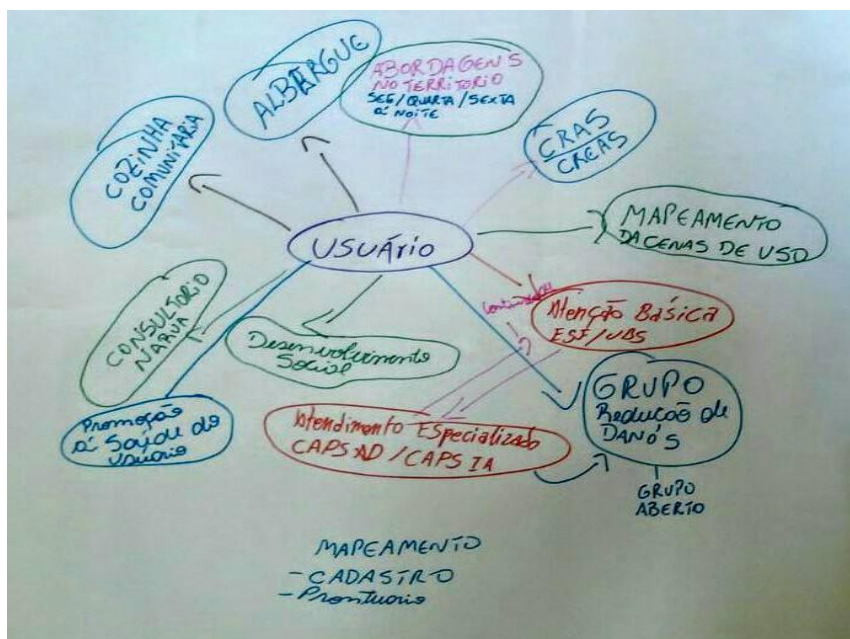 COZINHA
COMUNITARIA
ALBERGUE
ABORDAGENS
NO TERRITORIO
SEG/QUARTA/SEXTA
À NOITE
CRAS
CREAS
USUÁRIO
MAPEAMENTO
DACENAS DE USO
CONSULTORIO
NA RUA
Desenvolvimento
Social
Atenção Básica
ESF/UBS
Promoção
à Saúde do
usuario
Atendimento Especializado
CAPS AD / CAPS IA
GRUPO
Redução de
DANOS
GRUPO
ABERTO
MAPEAMENTO
- CADASTRO
- Prontuario